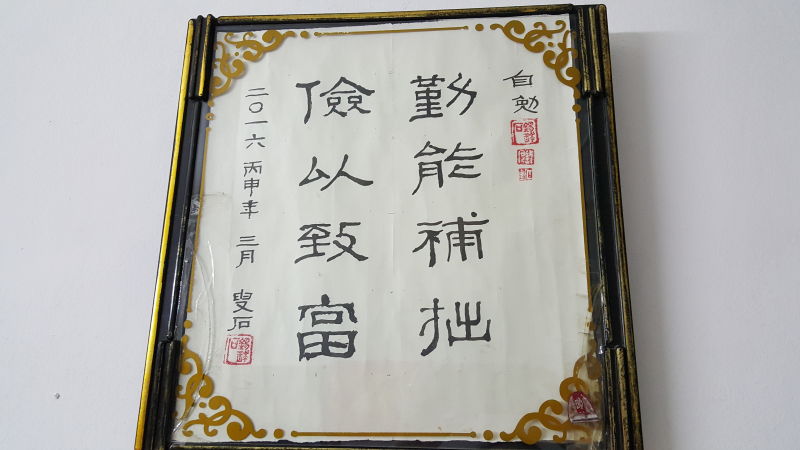 自勉
勤能補拙
儉以致富
二〇一六丙申年三月 叟石